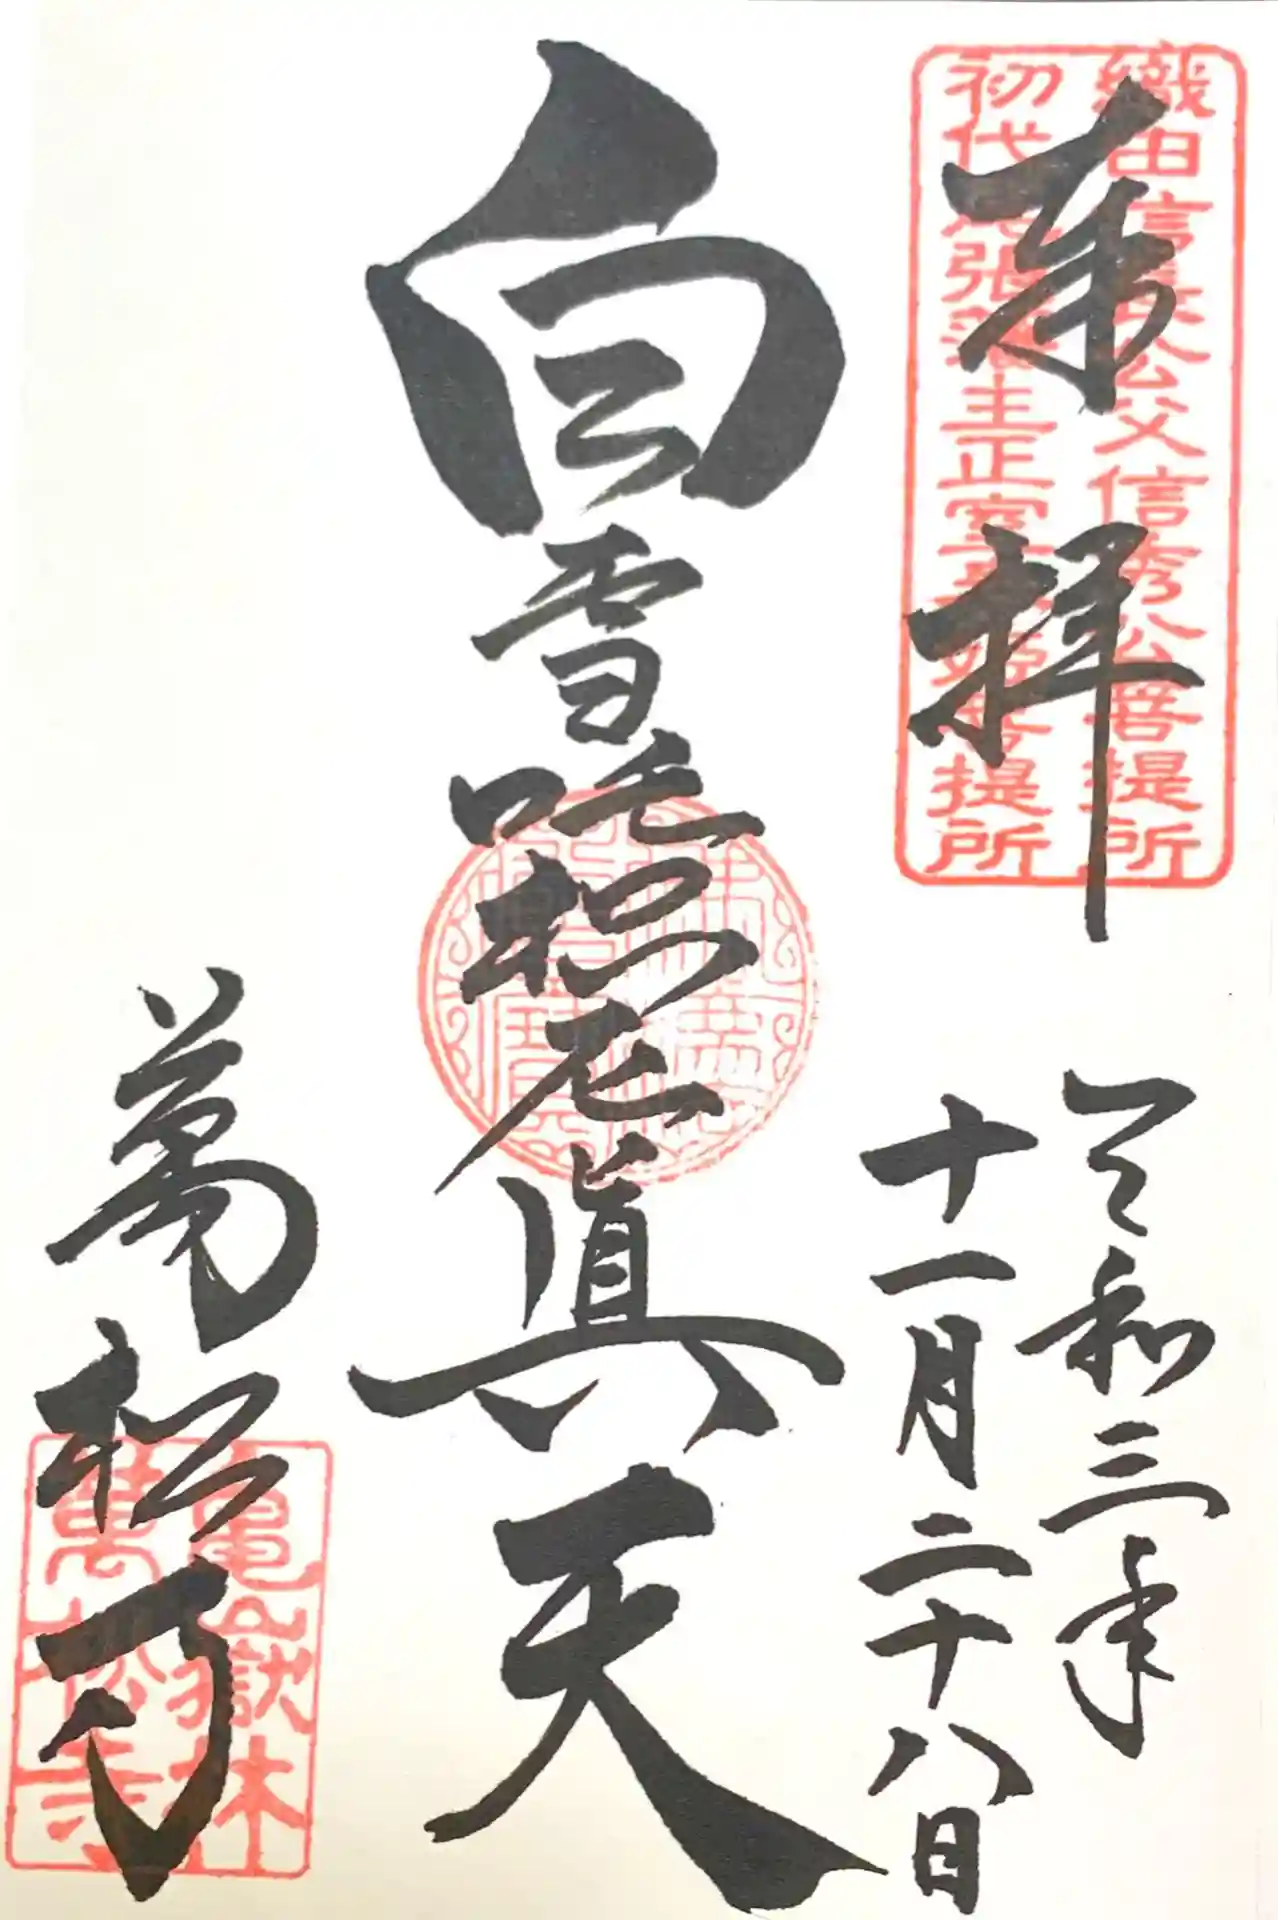 奉拝
織田信長公父信秀公菩提所
初代尾張藩主正室春姫菩提所
令和三年
十一月二十八日
白雪吒枳尼真天
萬松寺
亀嶽林
萬松寺